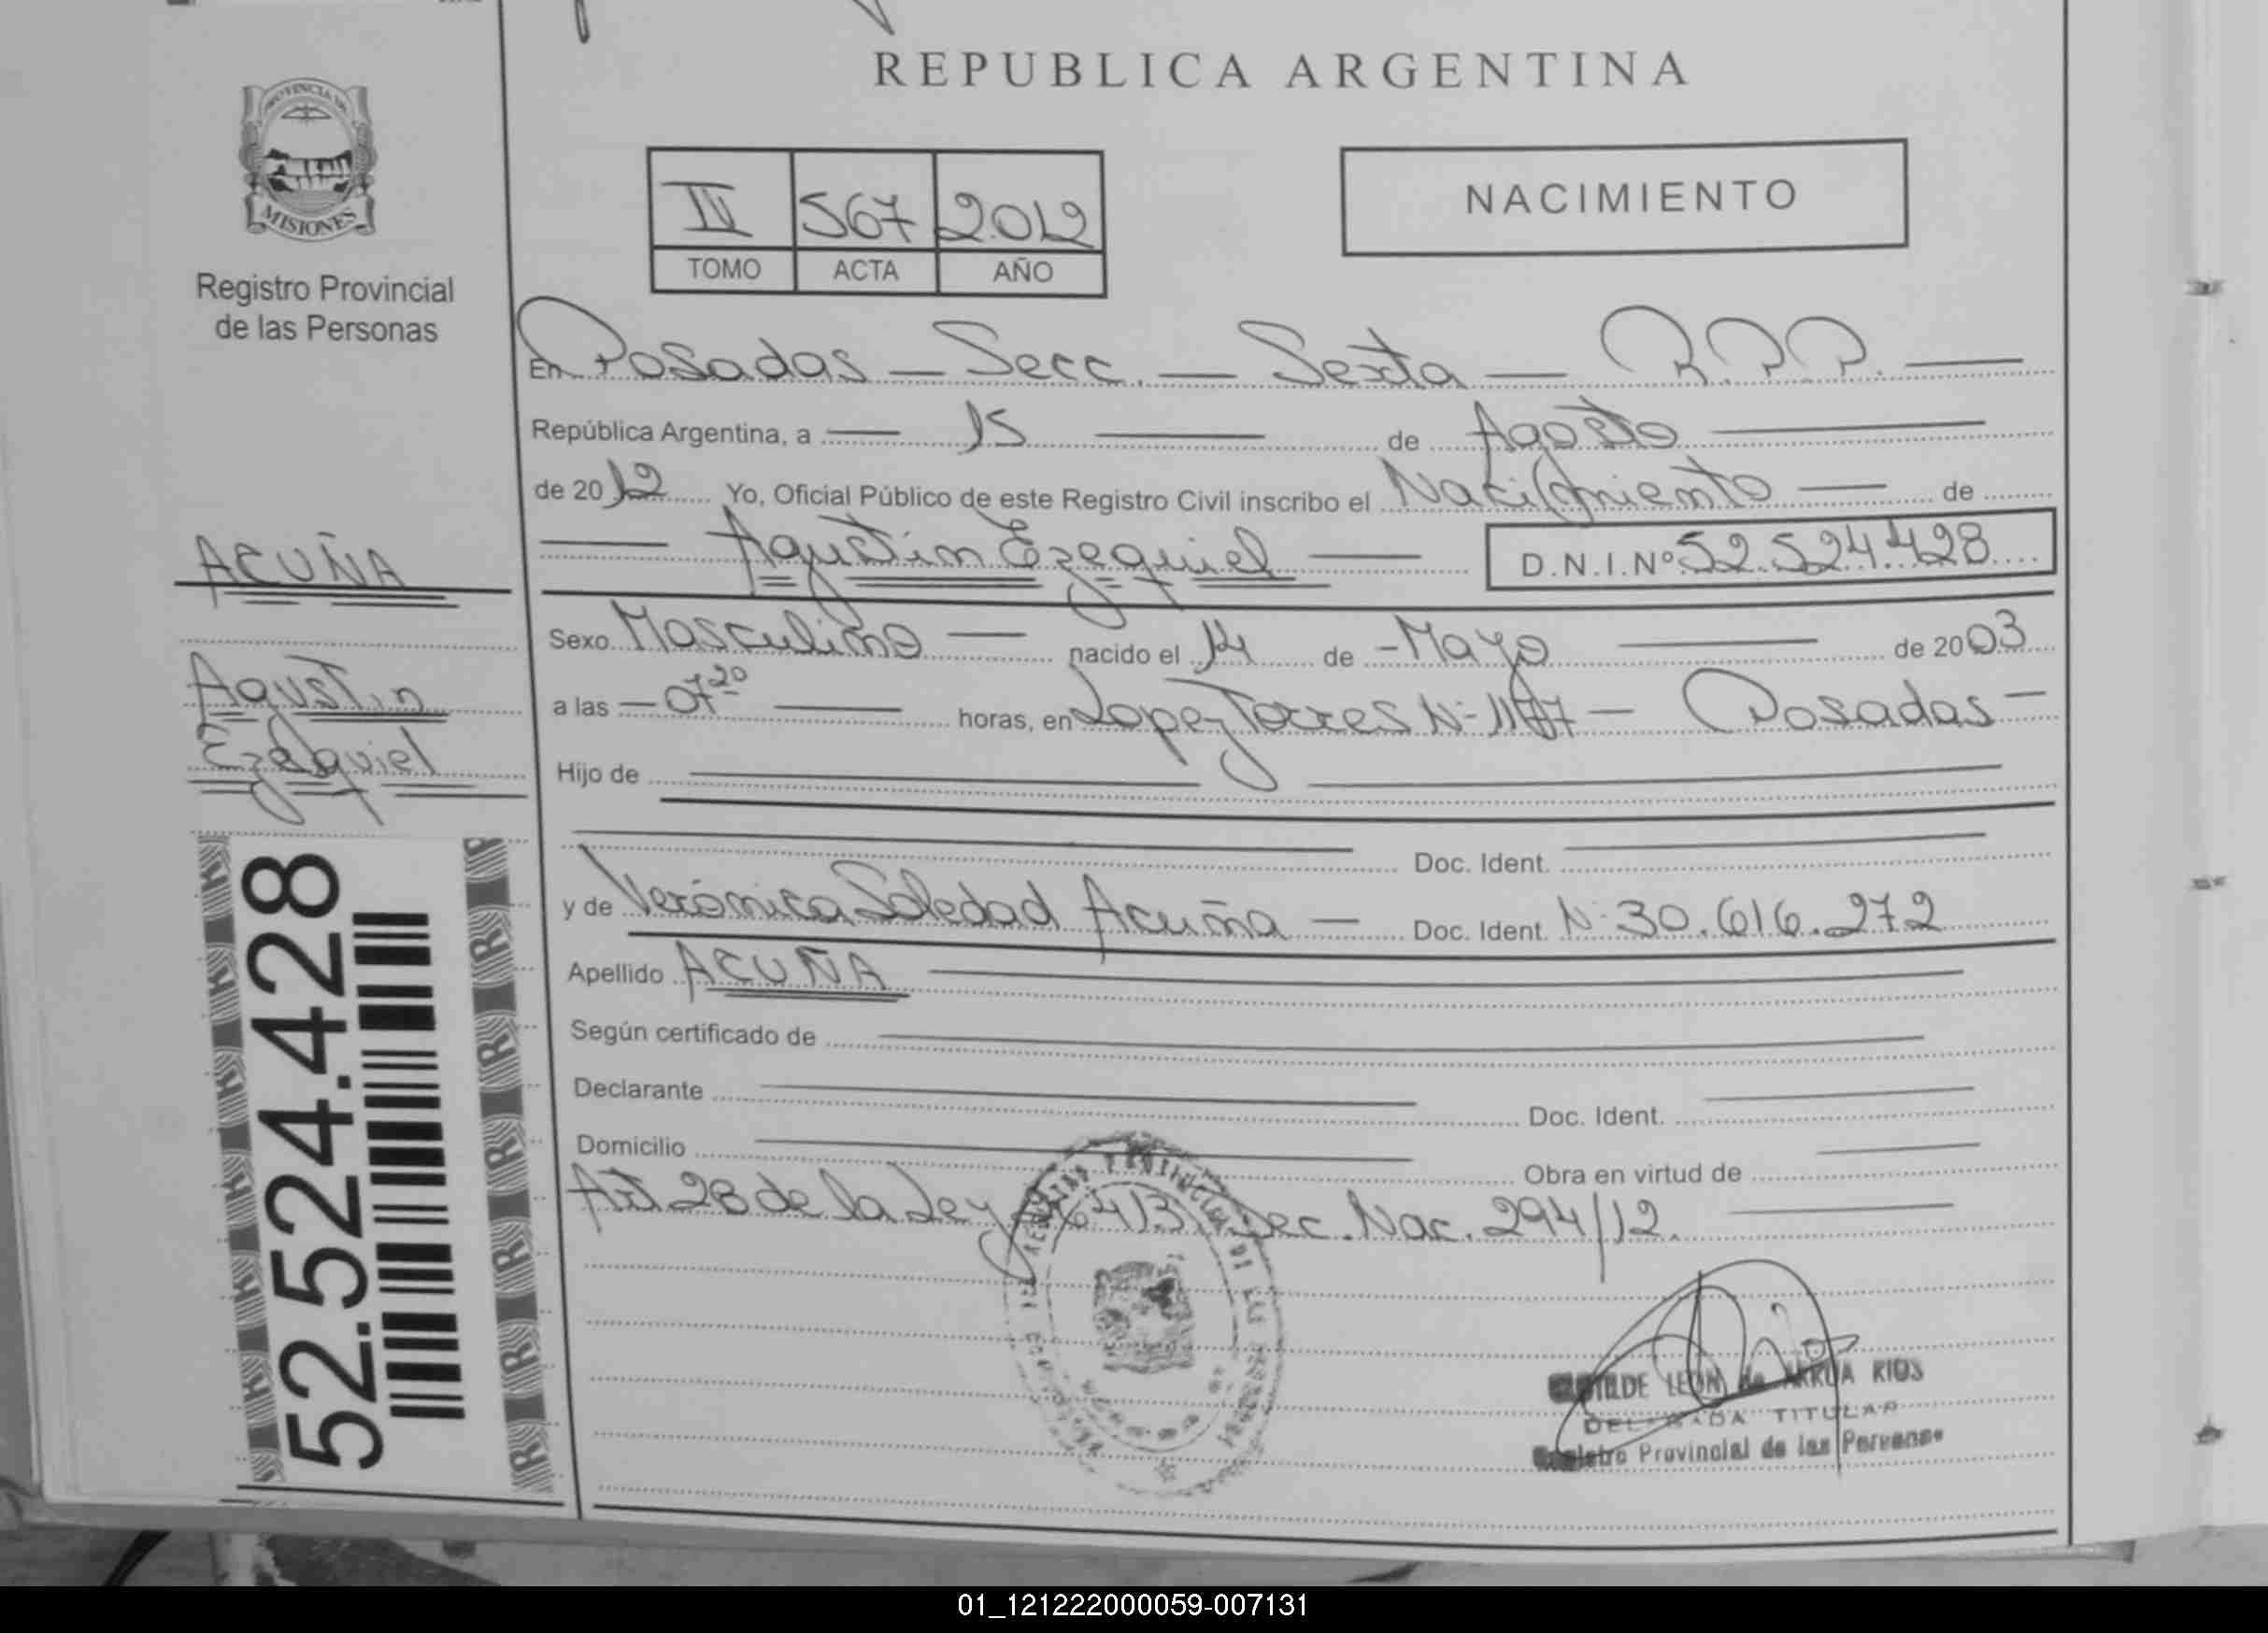 REPUBLICA ARGENTINA
PROVINCIA DE
MISIONES
Registro Provincial
de las Personas
IV 567 2012
TOMO ACTA AÑO
NACIMIENTO
En Posadas — Secc. — Sexta — R.P.P. —
República Argentina, a — 15 — de Agosto —
de 2012 Yo, Oficial Público de este Registro Civil inscribo el Nacimiento — de
— Agustin Ezequiel — D.N.I.Nº 52.524.428
ACUÑA
Agustin
Ezequiel
Sexo Masculino — nacido el 14 de - Mayo — de 2003
a las — 07 20 — horas, en Lopez Torres N- 1177 — Posadas —
Hijo de
Doc. Ident.
y de Verónica Soledad Acuña — Doc. Ident. N- 30.616.272
Apellido ACUÑA
Según certificado de
Declarante Doc. Ident.
Domicilio Obra en virtud de
Art 28 de la Ley 26413 Dec. Nac. 294/12.
52.524.428
LEON de ARRUA RIOS
DELEGADA TITULAR
Registro Provincial de las Personas
01_121222000059-007131